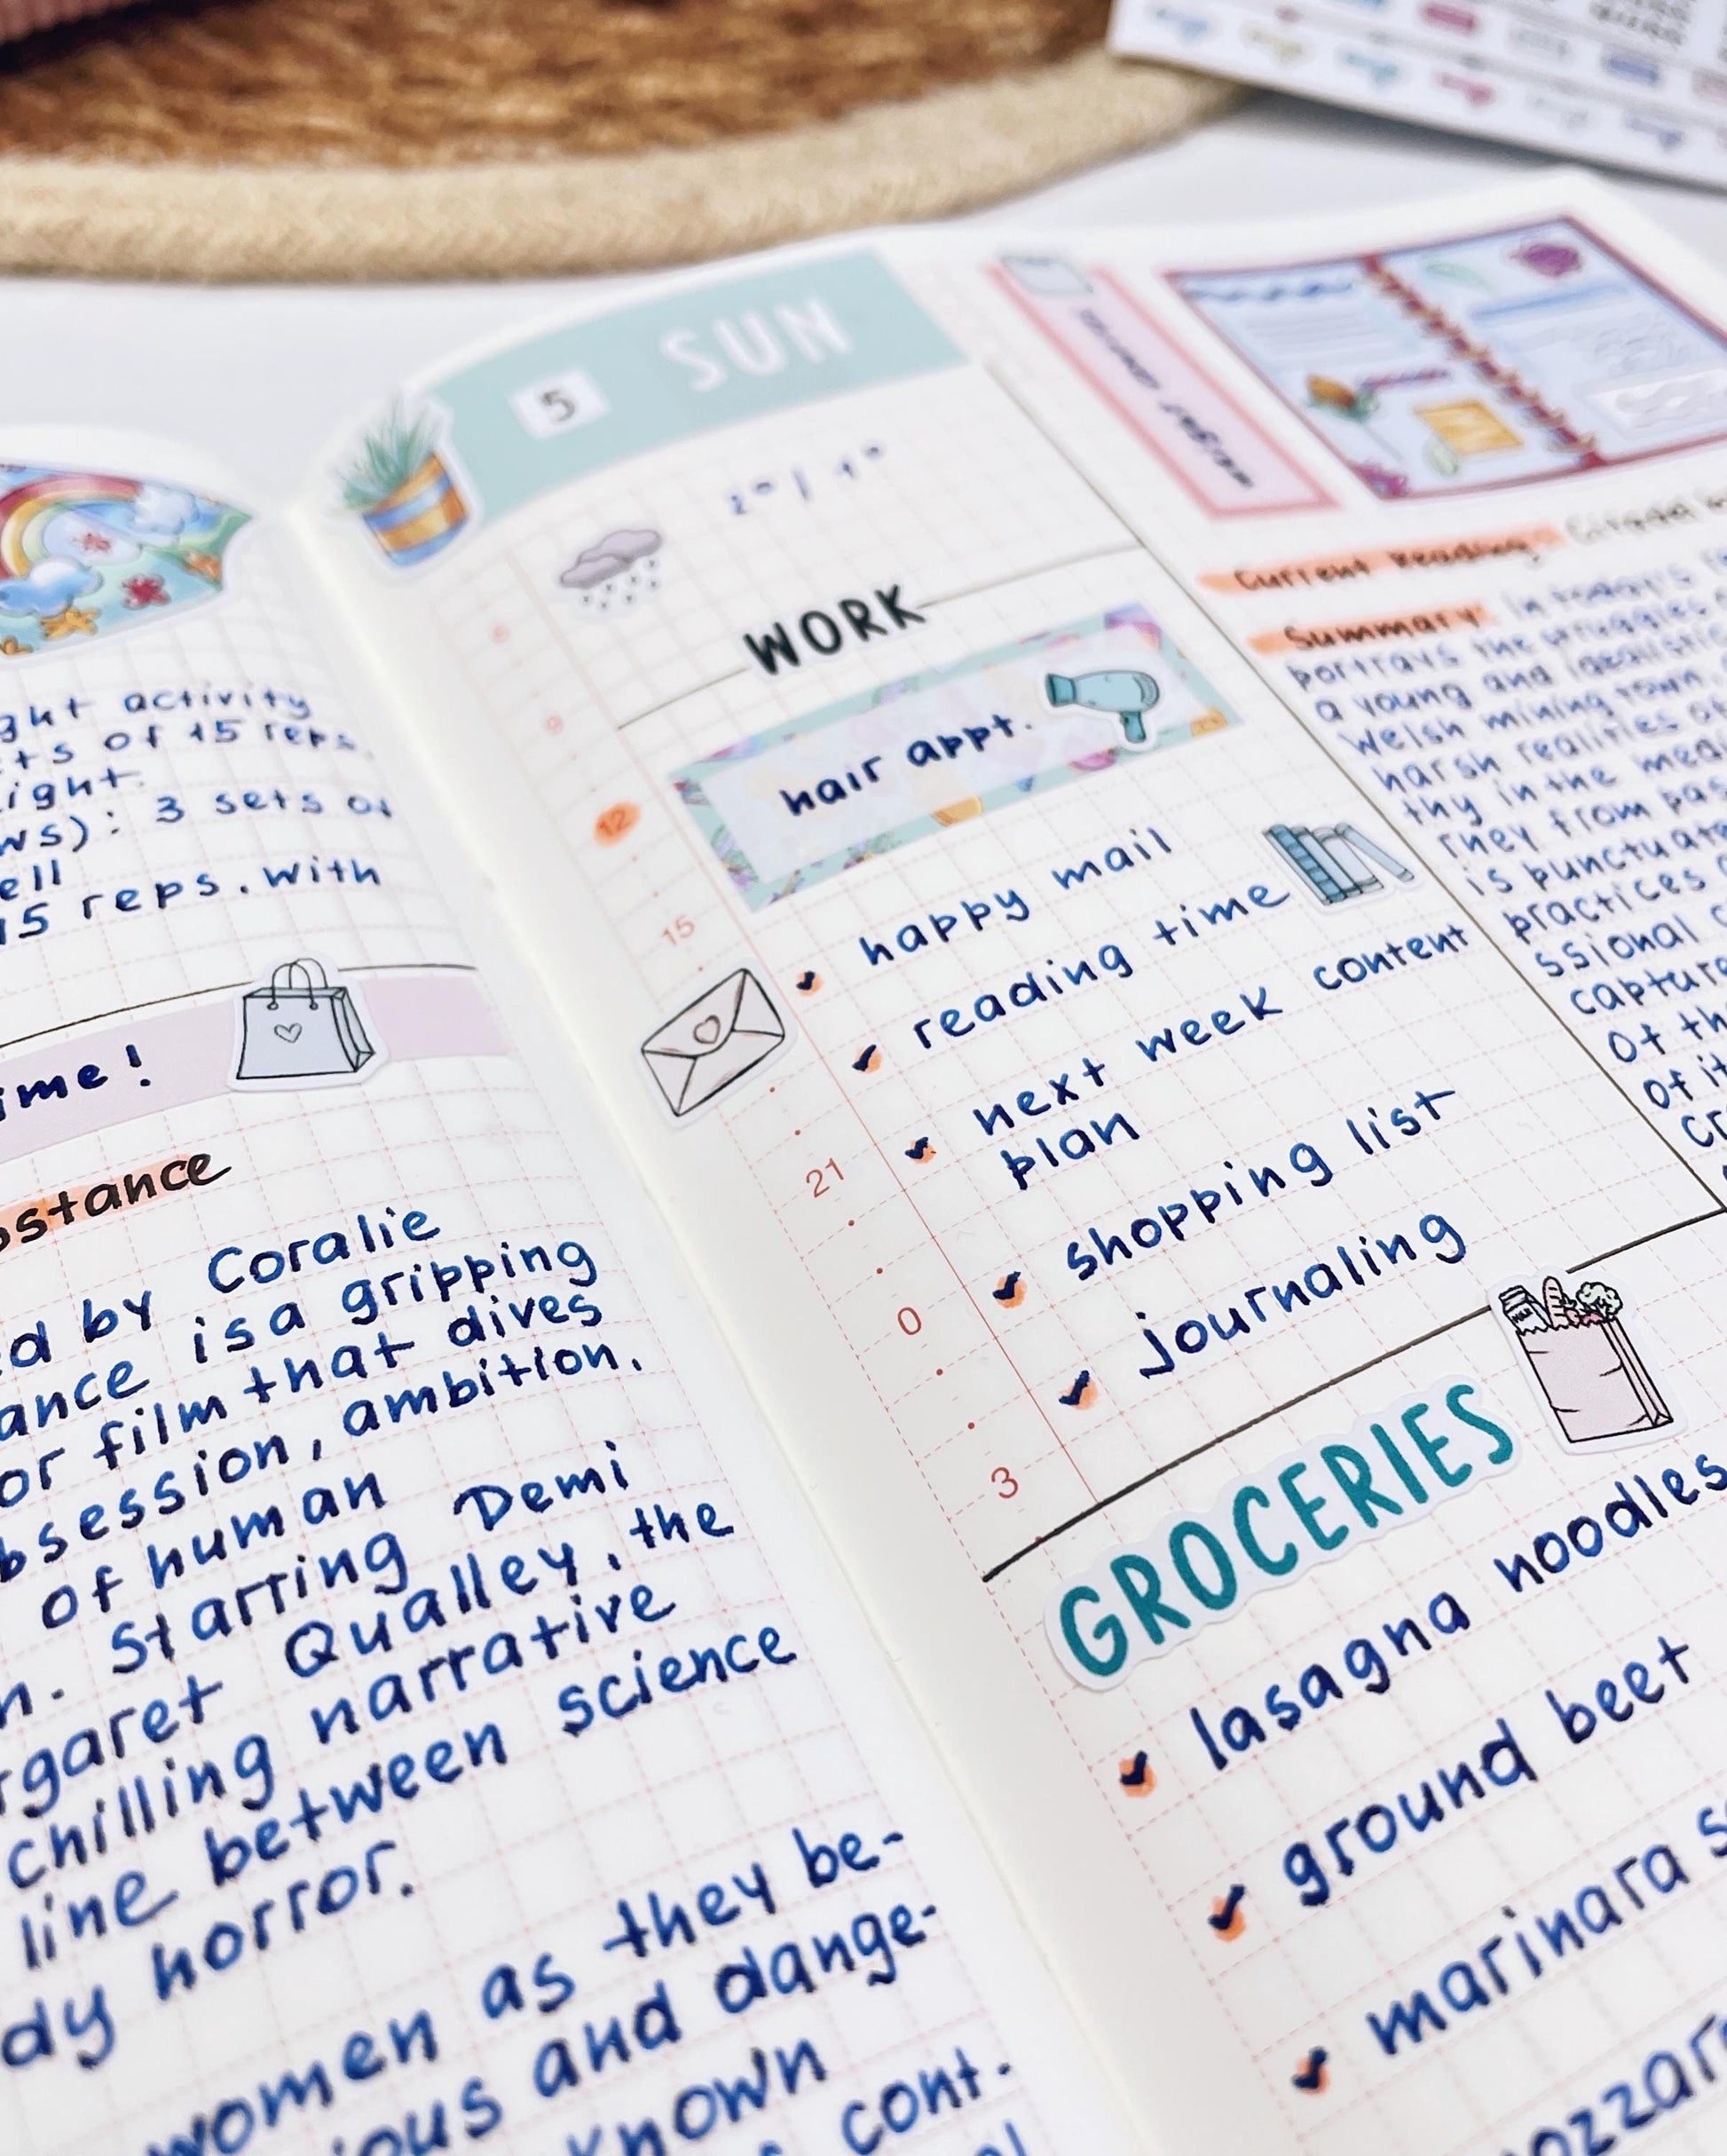 ght activity
ts of 15 reps.
ight.
ws): 3 sets of
ell
15 reps. with
ime!
ostance
ed by Coralie
ance is a gripping
or film that dives
bsession, ambition,
of human
n. Starring Demi
rgaret Qualley, the
chilling narrative
line between science
dy horror.
women as they be-
ous and dange-
known
cont.
5 SUN
WORK
9
hair appt.
12
15
happy mail
reading time
next week content
plan
21
shopping list
0
journaling
3
GROCERIES
lasagna noodles
ground beet
marinara s
ozzar
Current Reading: Citadel
Summary: In today's
portrays the struggles
a young and idealistic
Welsh mining town,
harsh realities of
thy in the medi
rney from pas
is punctuat
practices
ssional c
capture
of th
of it
cr